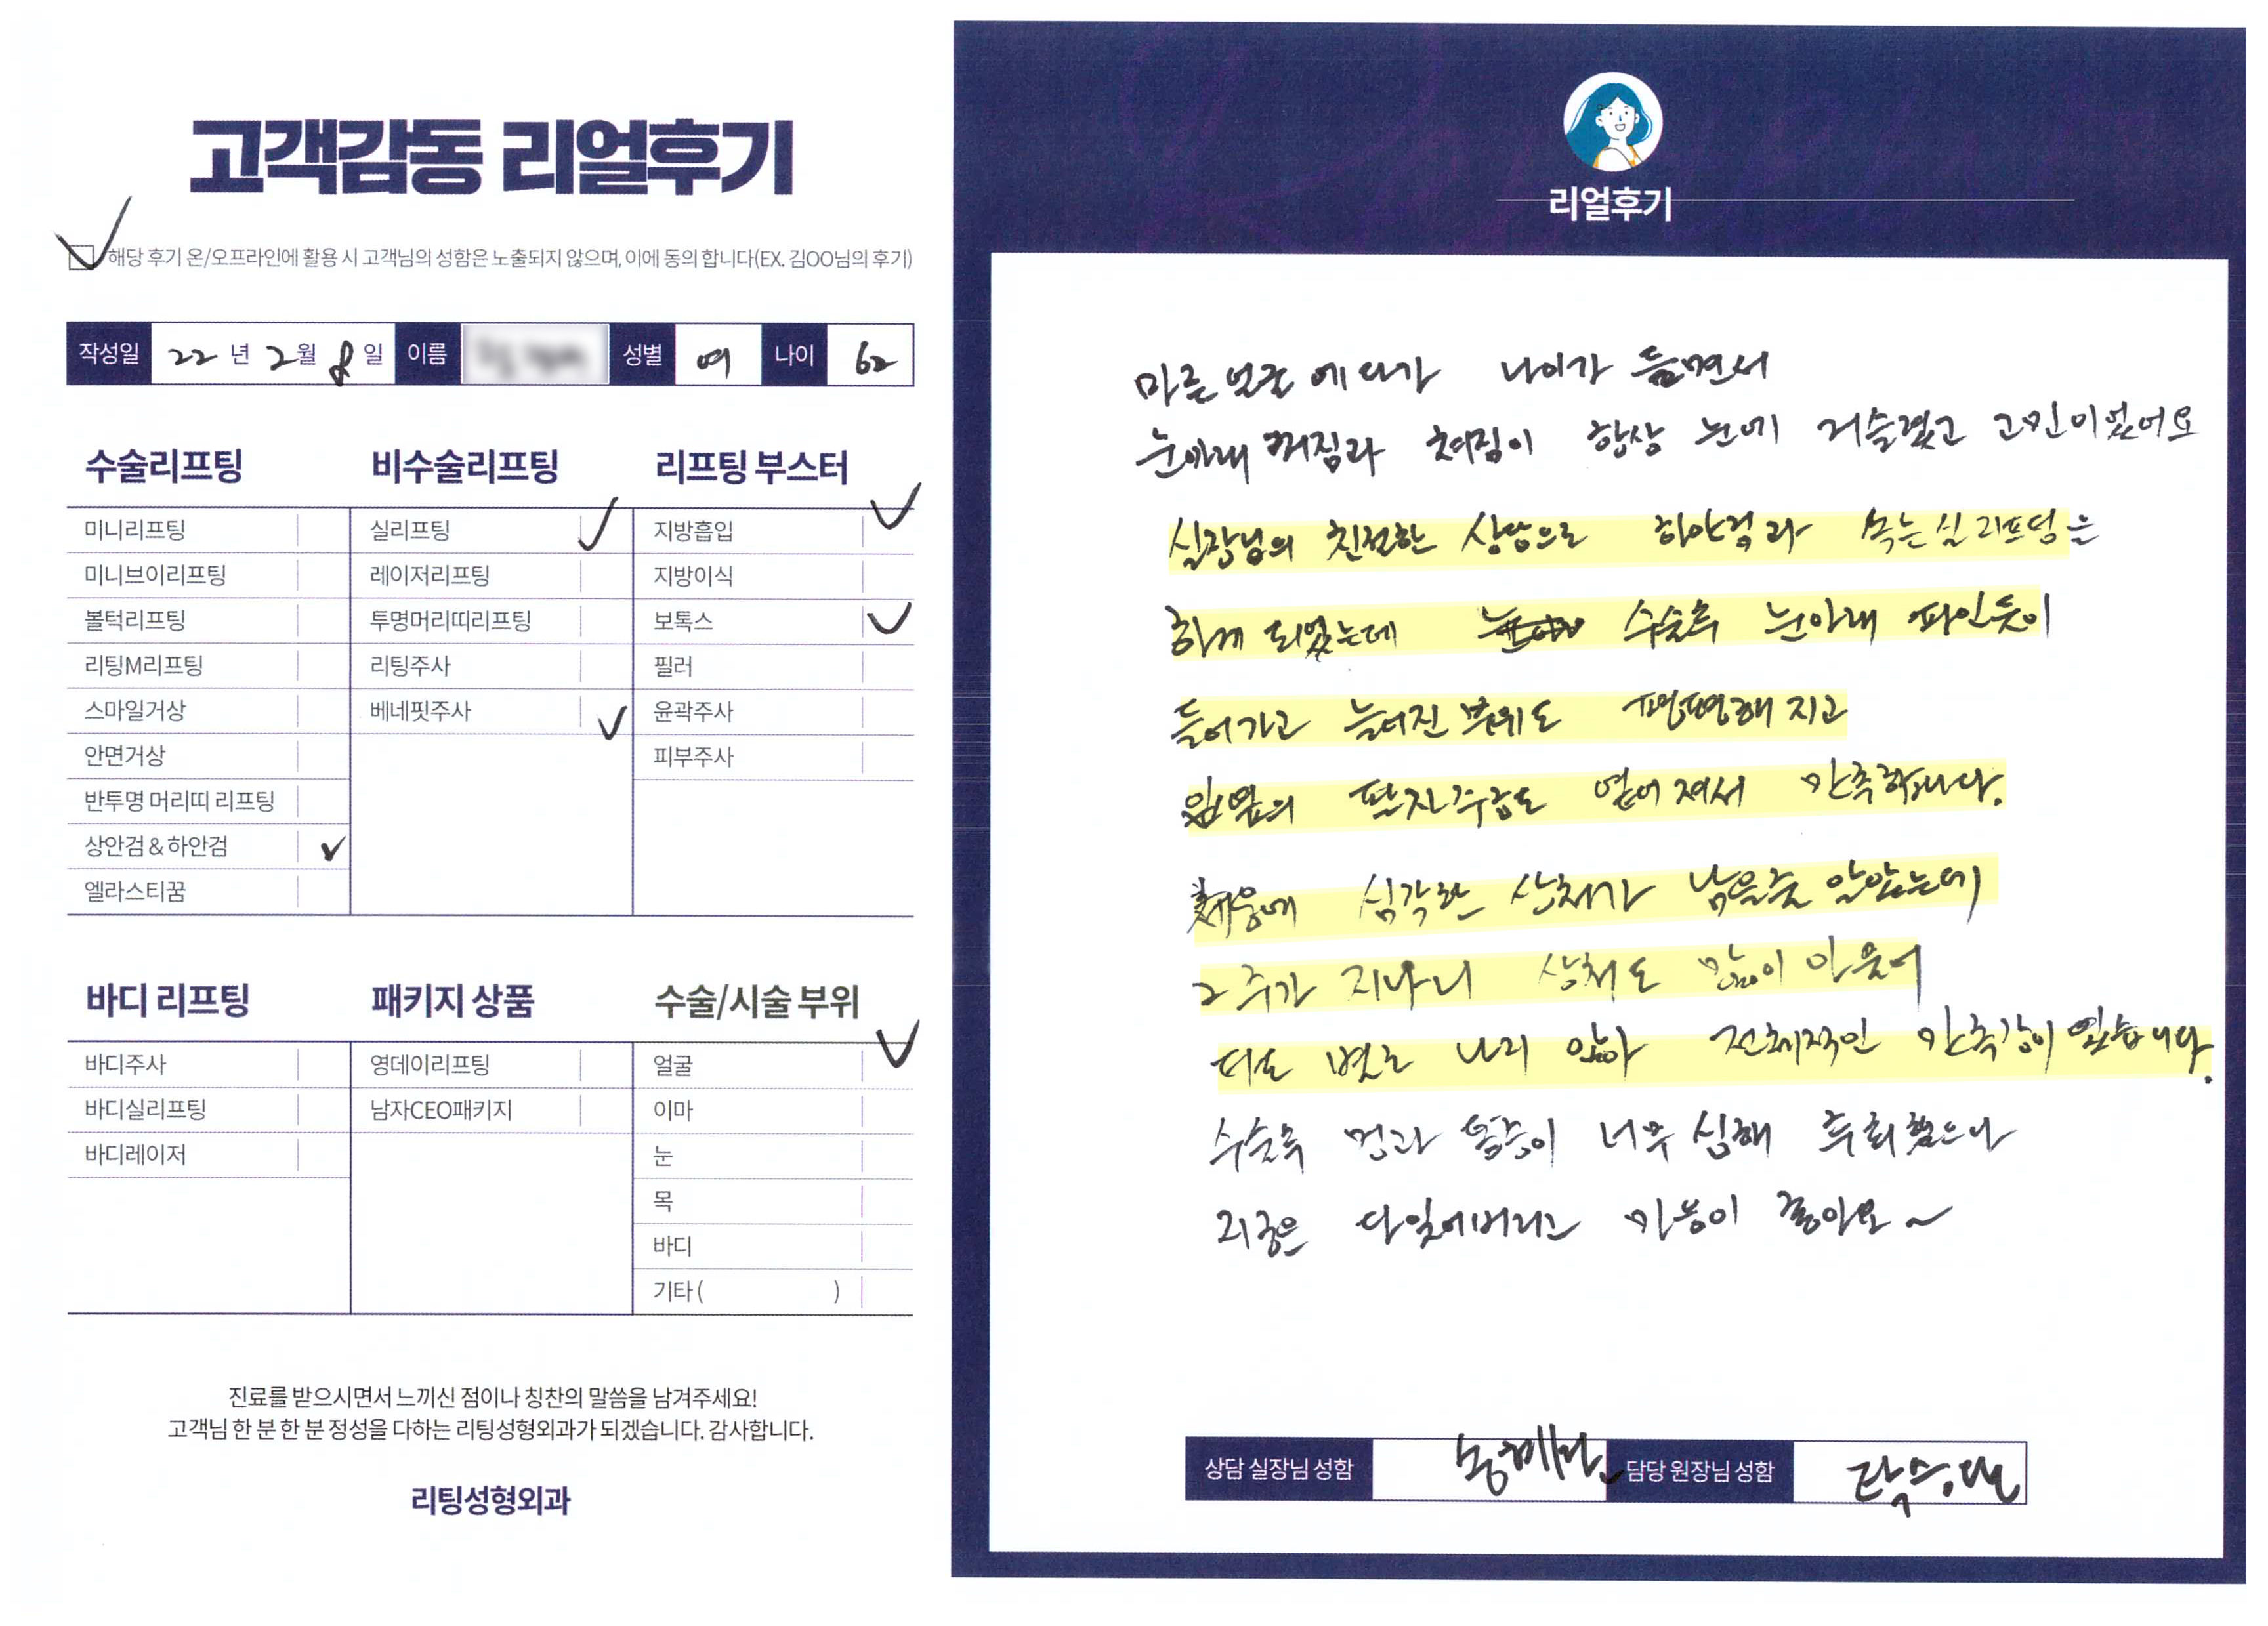 고객감동 리얼후기
해당 후기 온/오프라인에 활용 시 고객님의 성함은 노출되지 않으며, 이에 동의 합니다(EX. 김OO님의 후기)
작성일 22년 2월 8일 이름 성별 여 나이 62
수술리프팅
미니리프팅
미니브이리프팅
볼턱리프팅
리팅M리프팅
스마일거상
안면거상
반투명 머리띠 리프팅
상안검 & 하안검
엘라스티꿈
비수술리프팅
실리프팅
레이저리프팅
투명머리띠리프팅
리팅주사
베네핏주사
리프팅 부스터
지방흡입
지방이식
보톡스
필러
윤곽주사
피부주사
바디 리프팅
바디주사
바디실리프팅
바디레이저
패키지 상품
영데이리프팅
남자CEO패키지
수술/시술 부위
얼굴
이마
눈
목
바디
기타 ( )
진료를 받으시면서 느끼신 점이나 칭찬의 말씀을 남겨주세요!
고객님 한 분 한 분 정성을 다하는 리팅성형외과가 되겠습니다. 감사합니다.
리팅성형외과
리얼후기
마른 얼굴에다가 나이가 들면서
눈아래 꺼짐과 쳐짐이 항상 눈에 거슬렸고 고민이었어요
실장님의 친절한 상담으로 하안검과 녹는실리프팅을
하게 되었는데 수술후 눈아래 파인듯이
들어가고 늘어진 부위도 평평해지고
입옆의 팔자주름도 옅어져서 만족합니다.
처음에 심각한 상처가 남을줄 알았는데
2주가 지나니 상처도 많이 아물어
티도 별로 나지 않아 전체적인 만족감이 있습니다.
수술후 멍과 통증이 너무 심해 후회했으나
지금은 다 잊어버리고 마음이 좋아요~
상담 실장님 성함 담당 원장님 성함